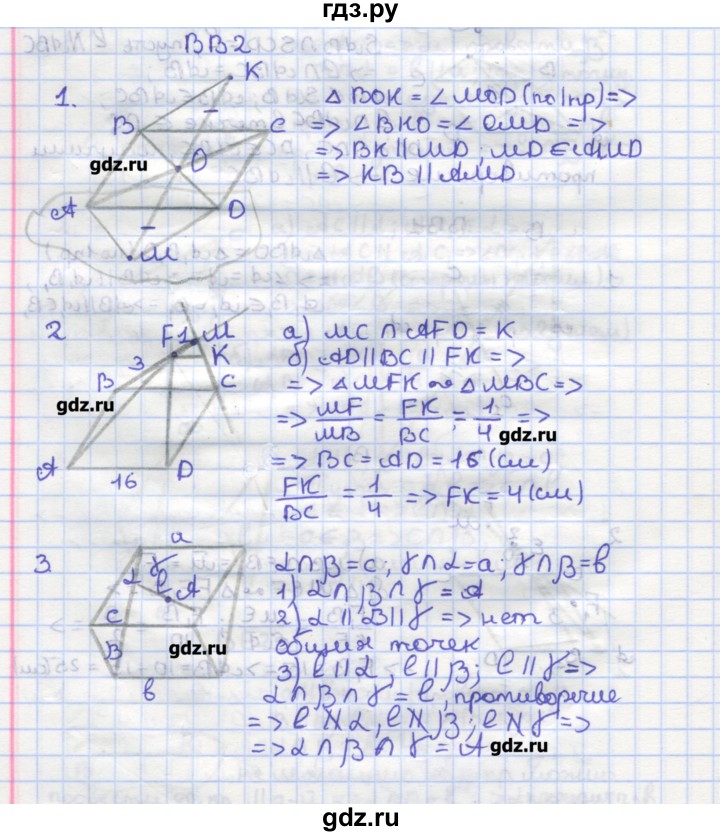 гдз.ру
ВВ-2
1.
K
B
C
O
A
D
M
gdz.ru
△BOK = ∠MOD (по Iпр) =>
=> ∠BKO = ∠OMD =>
=> BK || MD, MD ∈ AMD
=> KB || AMD
2
F 1 M
3
K
B
C
gdz.ru
A
16
D
а) MC ∩ AFD = K
б) AD || BC || FK =>
=> △MFK ∾ △MBC =>
=> MF/MB = FK/BC = 1/4 =>
gdz.ru
=> BC = AD = 16 (см)
FK/BC = 1/4 => FK = 4 (см)
3
a
γ
α
A
c
β
b
gdz.ru
α ∩ β = c, γ ∩ α = a; γ ∩ β = b
1) α ∩ β ∩ γ = A
2) α || β || γ => нет
общих точек
3) l || α, l || β; l || γ =>
α ∩ β ∩ γ = l, противоречие
=> l ∦ α, l ∦ β; l ∦ γ =>
=> α ∩ β ∩ γ = A
gdz.ru
gdz.ru